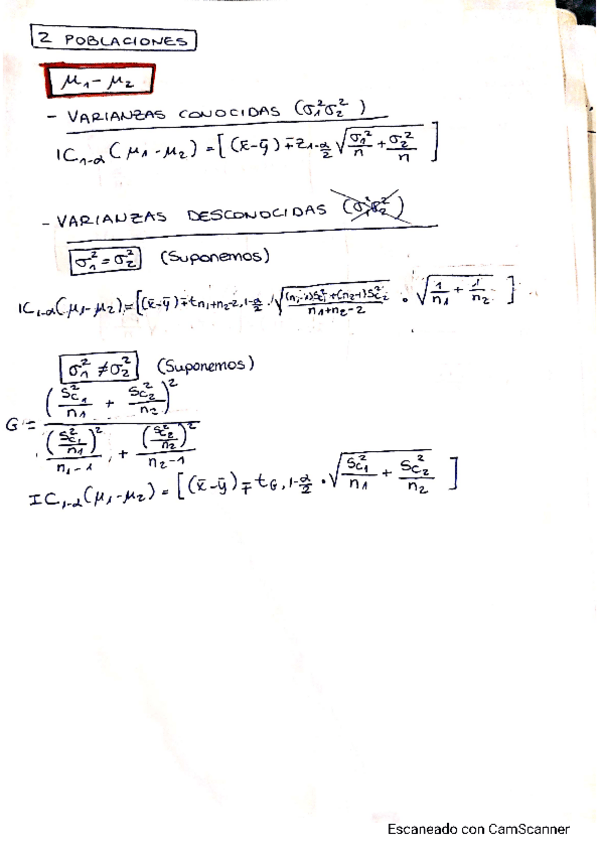 2 POBLACIONES
μ₁ - μ₂
- VARIANZAS CONOCIDAS (σ₁² σ₂²)
IC₁₋α (μ₁ - μ₂) = [ (x̄ - ȳ) ∓ z₁₋α/₂ √(σ₁²/n + σ₂²/n) ]
- VARIANZAS DESCONOCIDAS (σ₁² σ₂²)
σ₁² = σ₂² (Suponemos)
IC₁₋α (μ₁ - μ₂) = [ (x̄ - ȳ) ∓ t n₁+n₂-2, 1-α/2 · √(((n₁-1)Sc₁² + (n₂-1)Sc₂²)/(n₁+n₂-2)) · √(1/n₁ + 1/n₂) ]
σ₁² ≠ σ₂² (Suponemos)
G = (Sc₁²/n₁ + Sc₂²/n₂)² / ((Sc₁²/n₁)²/(n₁-1) + (Sc₂²/n₂)²/(n₂-1))
IC₁₋α (μ₁ - μ₂) = [ (x̄ - ȳ) ∓ t G, 1-α/2 · √(Sc₁²/n₁ + Sc₂²/n₂) ]
Escaneado con CamScanner